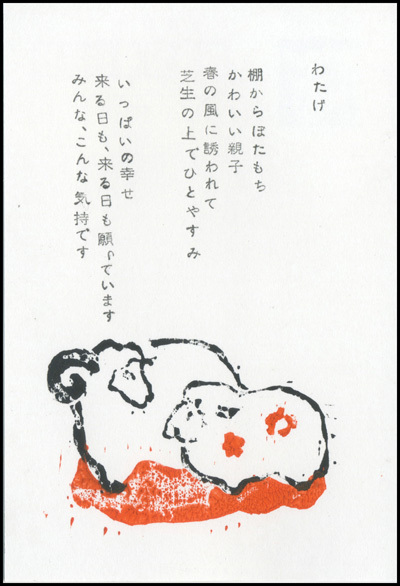 わたげ
棚からぼたもち
かわいい親子
春の風に誘われて
芝生の上でひとやすみ
いっぱいの幸せ
来る日も、来る日も願っています
みんな、こんな気持です